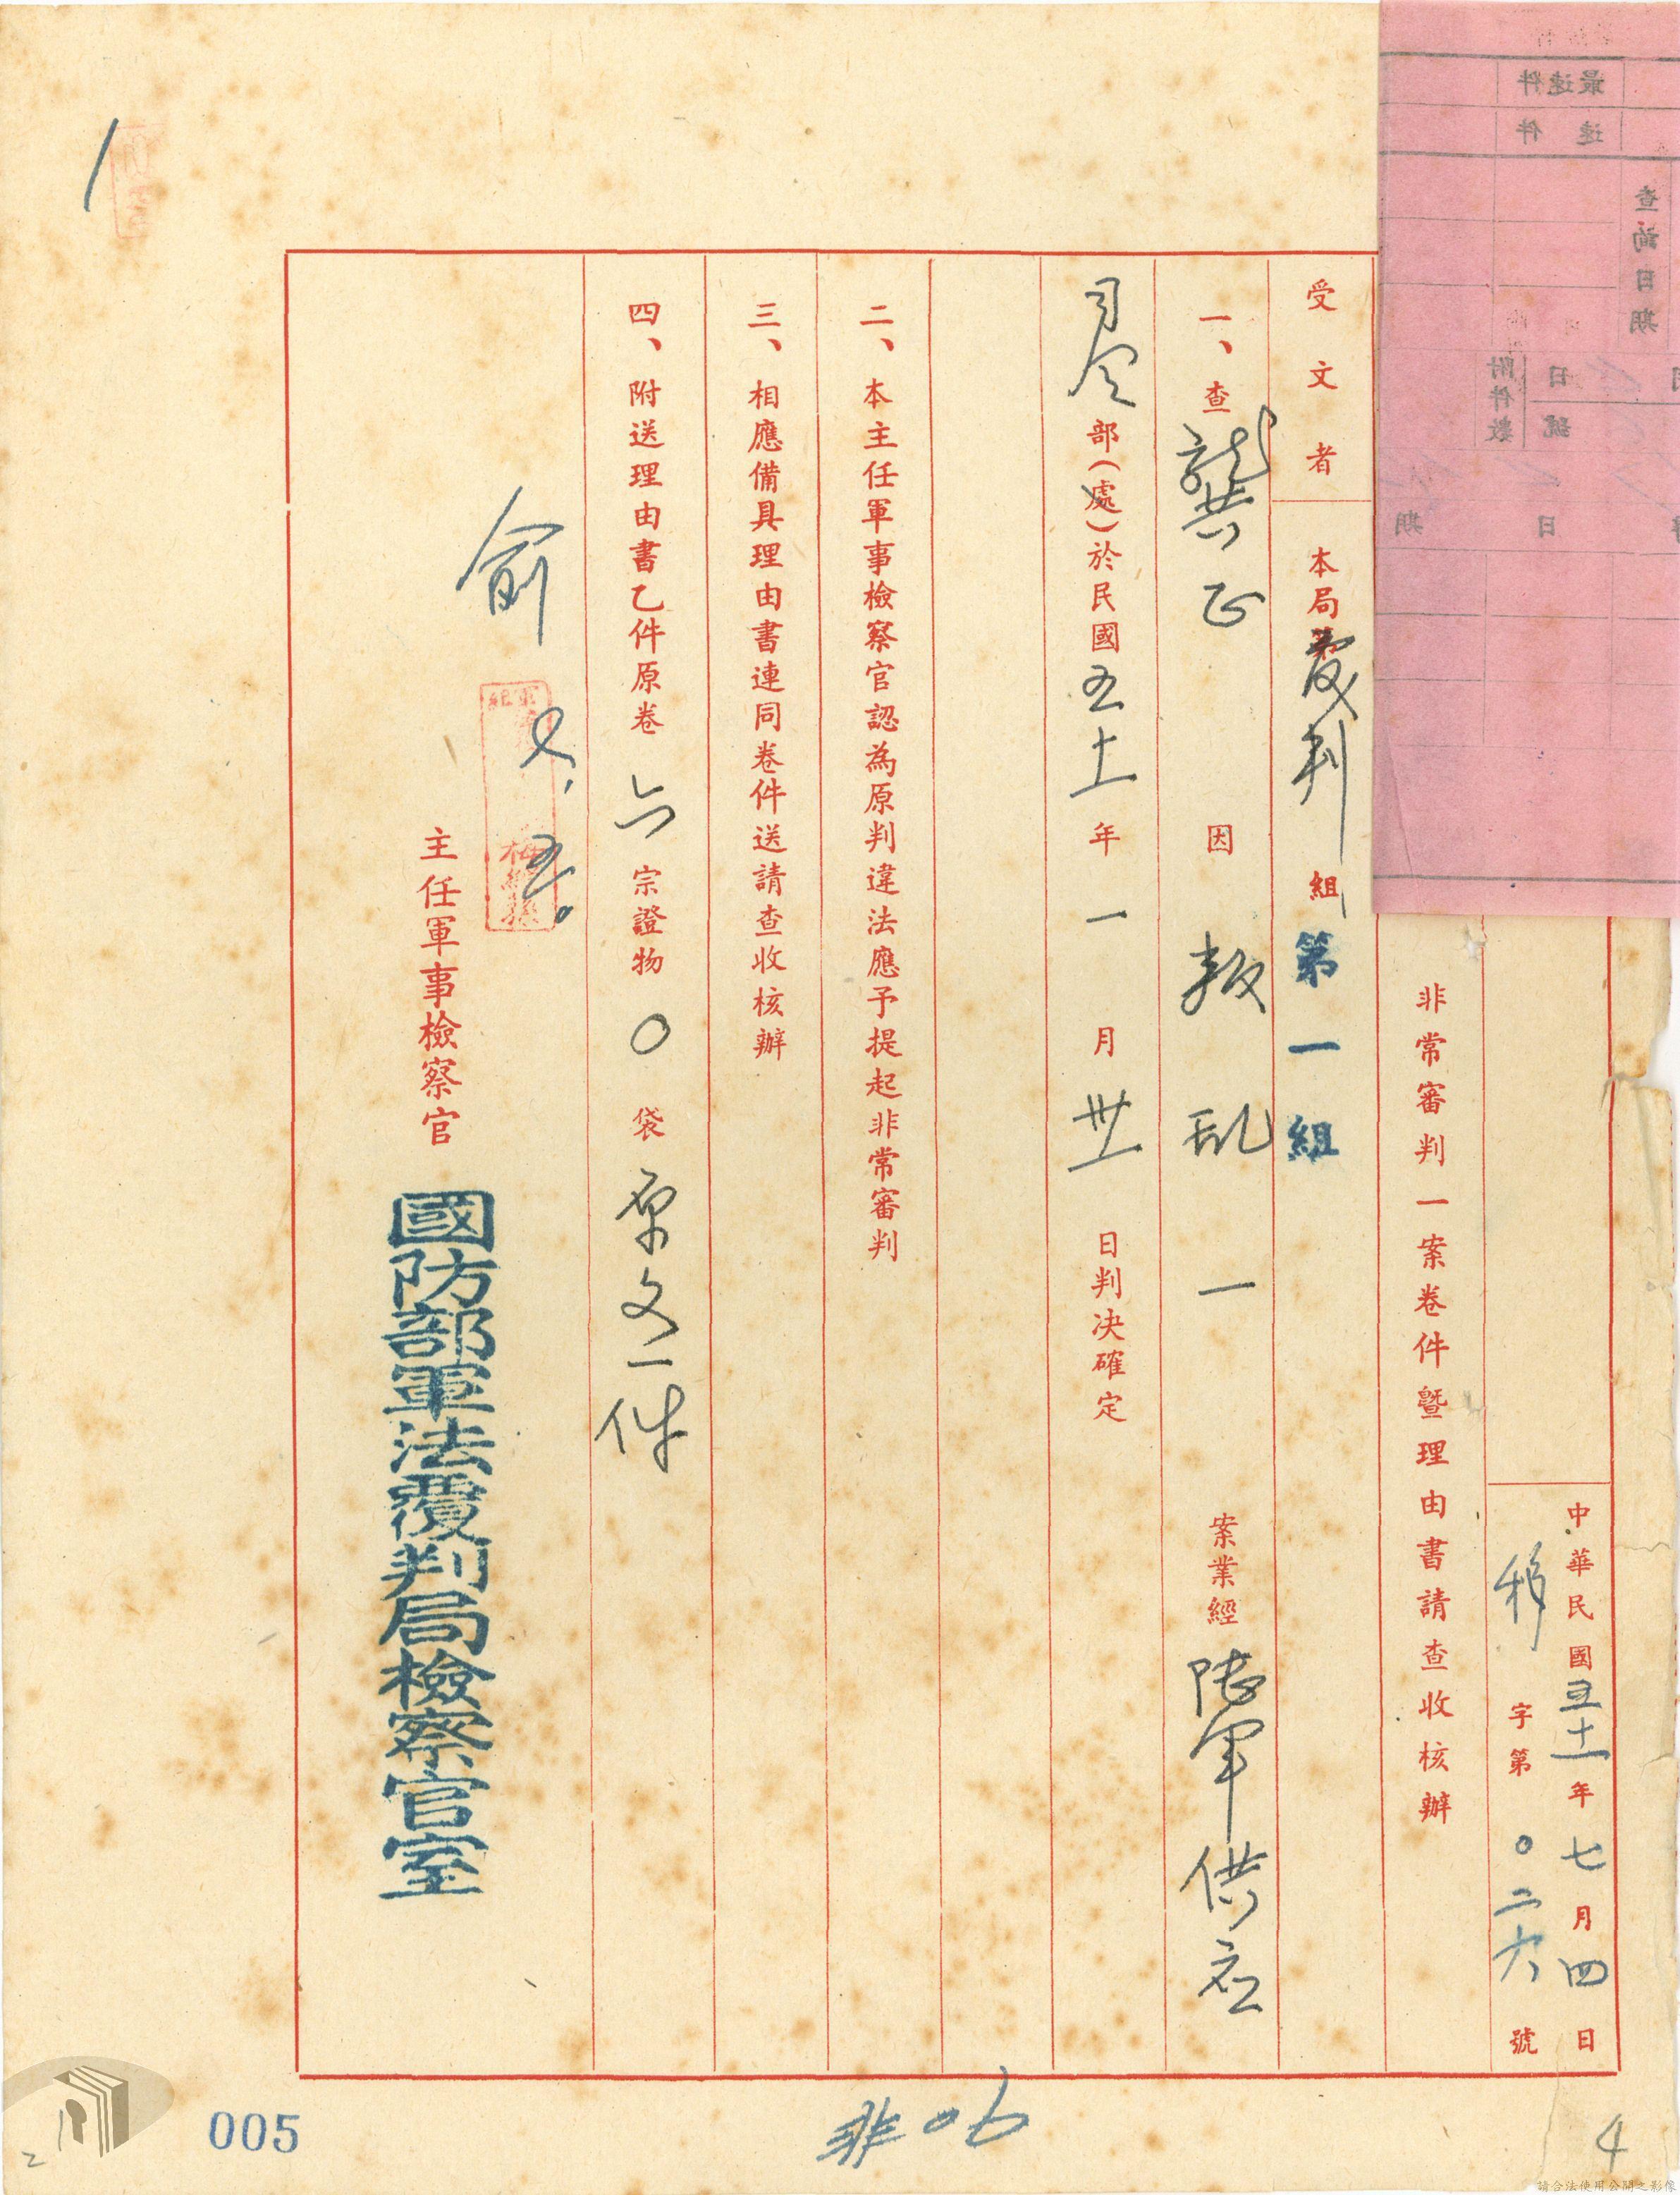 中華民國五十一年七月四日
移字第〇二六號
非常審判一案卷件暨理由書請查收核辦
受文者 本局覆判組 第一組
一、查龔正因叛乱一案業經陸軍供应
司令部(處)於民國五十一年一月卅一日判決確定
二、本主任軍事檢察官認為原判違法應予提起非常審判
三、相應備具理由書連同卷件送請查收核辦
四、附送理由書乙件原卷六宗證物〇袋原文一件
俞
主任軍事檢察官
國防部軍法覆判局檢察官室
最速件
速件
查詢日期
附件數
日
號
日
期
005
4
請合法使用公開之影像